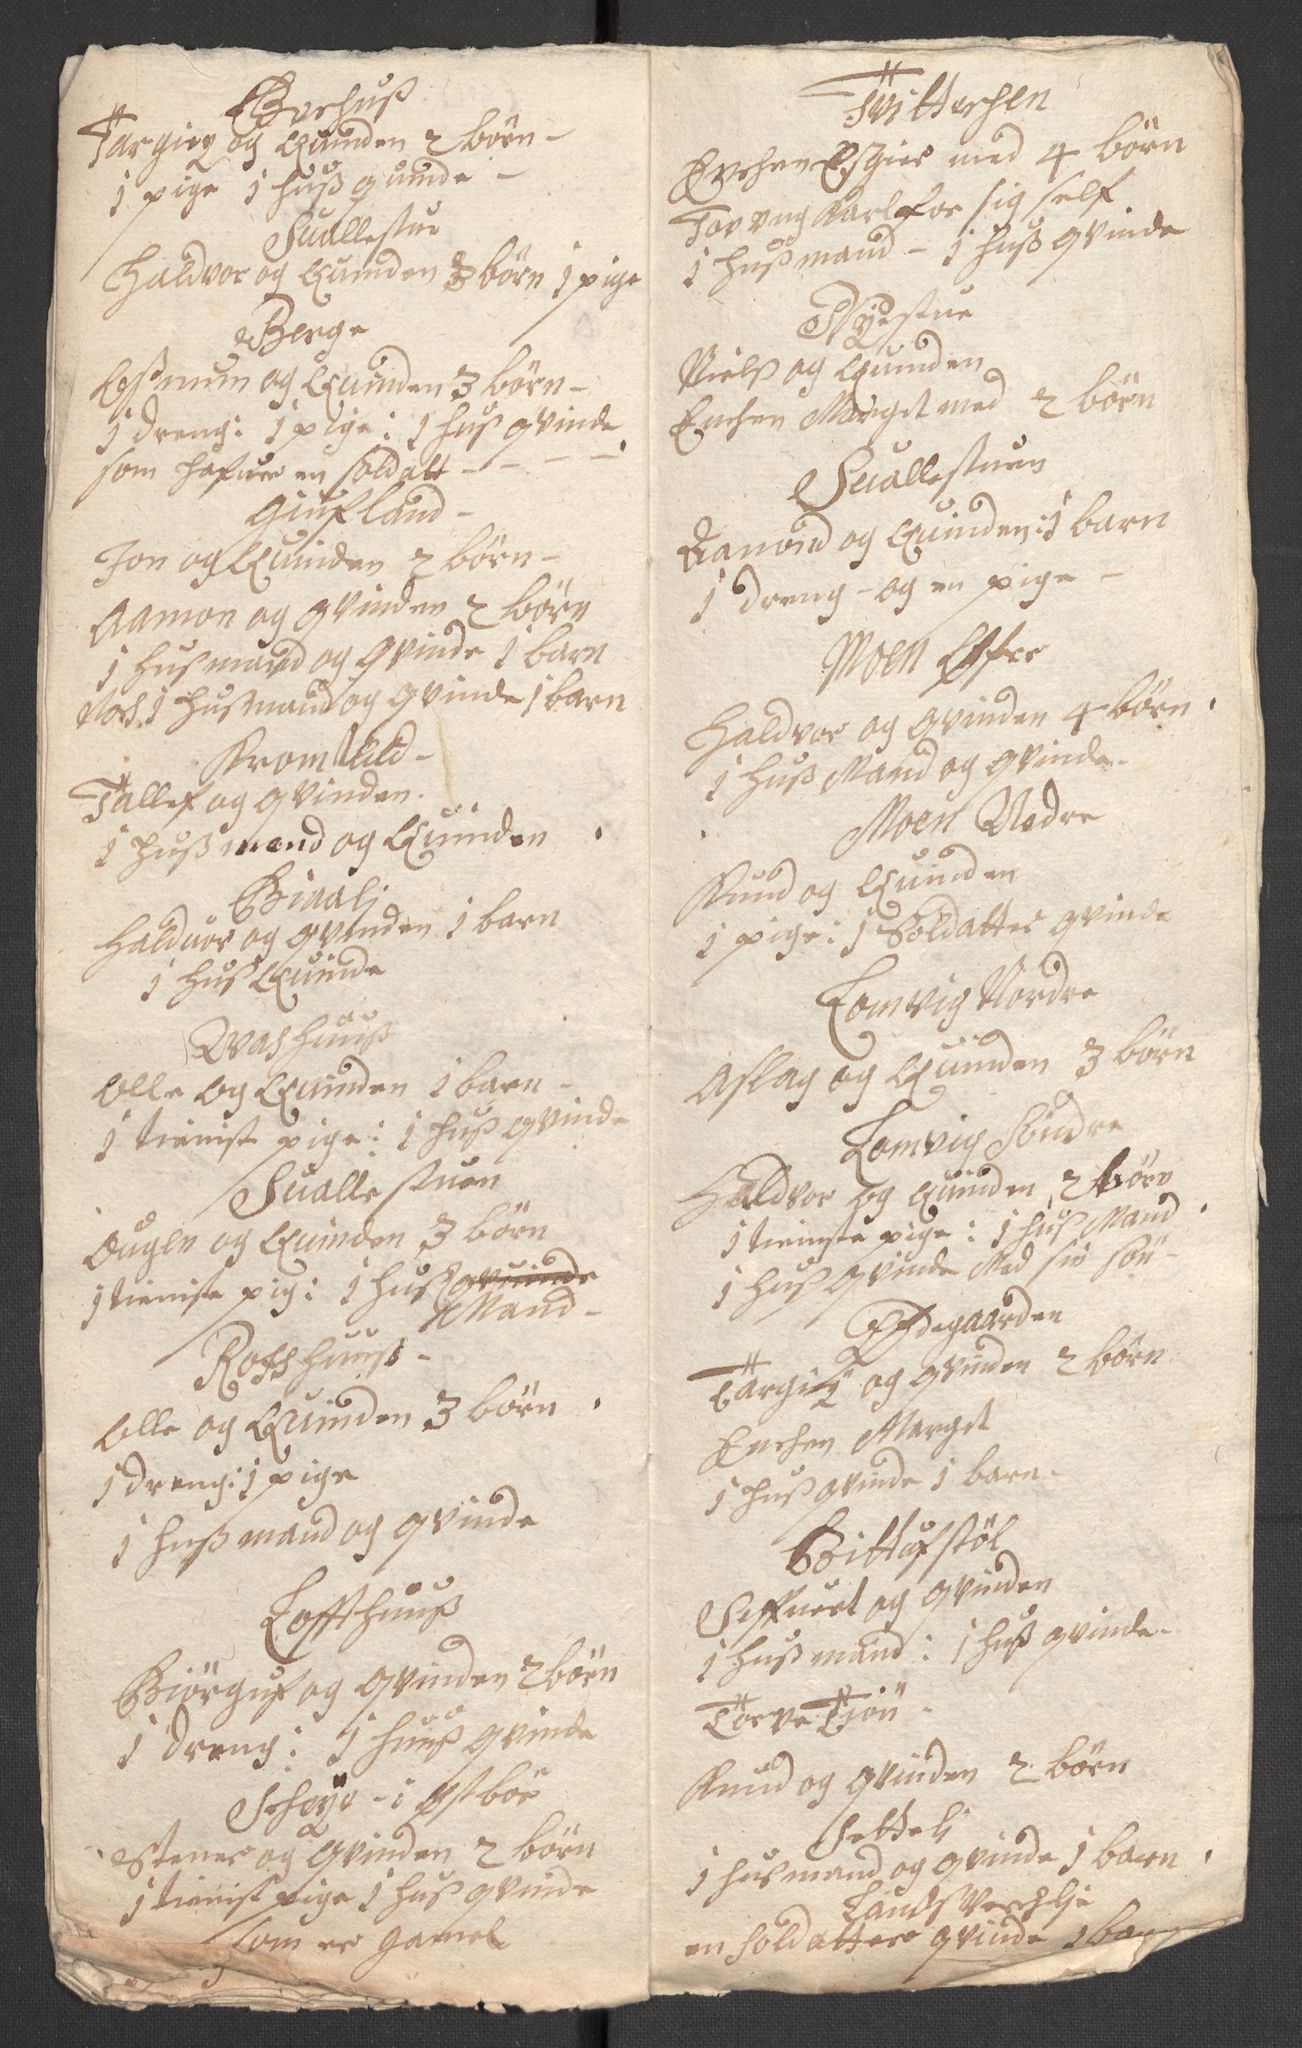 Berhuß
Targier og Quinden 2 börn -
1 pige 1 huß quinde -
Suallestue
Haldvor og Quinden 3 börn 1 pige
Berge
Aßmun og Quinden 3 börn -
1 dreng: 1 pige: 1 huß qvinde
som hafuer en soldatt - - - -
Giufland -
Jon og Quinden 2 börn -
Aamon og qvinden 2 börn
1 husmand og qvinde 1 barn
Noch 1 husmand og qvinde 1 barn
Krom
Tallef og qvinden.
1 hußmand og Quinden
Biaali
Halduor og qvinden 1 barn
1 huß Quinde
Washuuß
Olle og Quinden 1 barn -
1 tienist pige: 1 huß qvinde
Sualle stuen
Ougen og Quinden 3 börn
1 tieniste pig: 1 huß qvuinde
Mand -
Roshuuß -
Olle og Quinden 3 börn
1 dreng: 1 pige
1 hußmand og qvinde
Loffthuuß
Biörguf og qvinden 2 börn
1 dreng: 1 huuß qvinde
Scheye - i Østbör
Stener og qvinden 2 börn
1 tienist pige 1 huß qvinde
som er gamel
Tvitterhen
Enchen Esgier med 4 börn
Tov ung Karl for sig self
1 hußmand - 1 huß qvinde
Nyestue
Nielß og Quinden
Enchen Marget med 2 börn
Suallestuen
Aamond og Quinden: 1 barn
1 dreng - og en pige -
Moen Øfre
Haldvor og qvinden 4 börn
1 huß Mand og qvinde -
Moen Nedre
Knud og Quinden
1 pige: 1 Soldatter qvinde
Lomvig Nordre
Aslag og Quinden 3 börn
Lomvig Söndre
Haldvor og Quinden 2 börn
1 tieniste pige: 1 huß Mand
1 huß qvinde Med sin sön -
Ødegaarden
Targier og qvinden 2 börn
Enchen Marget
1 huß qvinde 1 barn -
Bittufstöl
Seffuert og qvinden
1 hußmand: 1 huß qvinde -
Torve Tiön -
Knud og qvinden 2 börn
Sebteli
1 husmand og qvinde 1 barn
Landsverchlie
en soldatters qvinde 1 barn